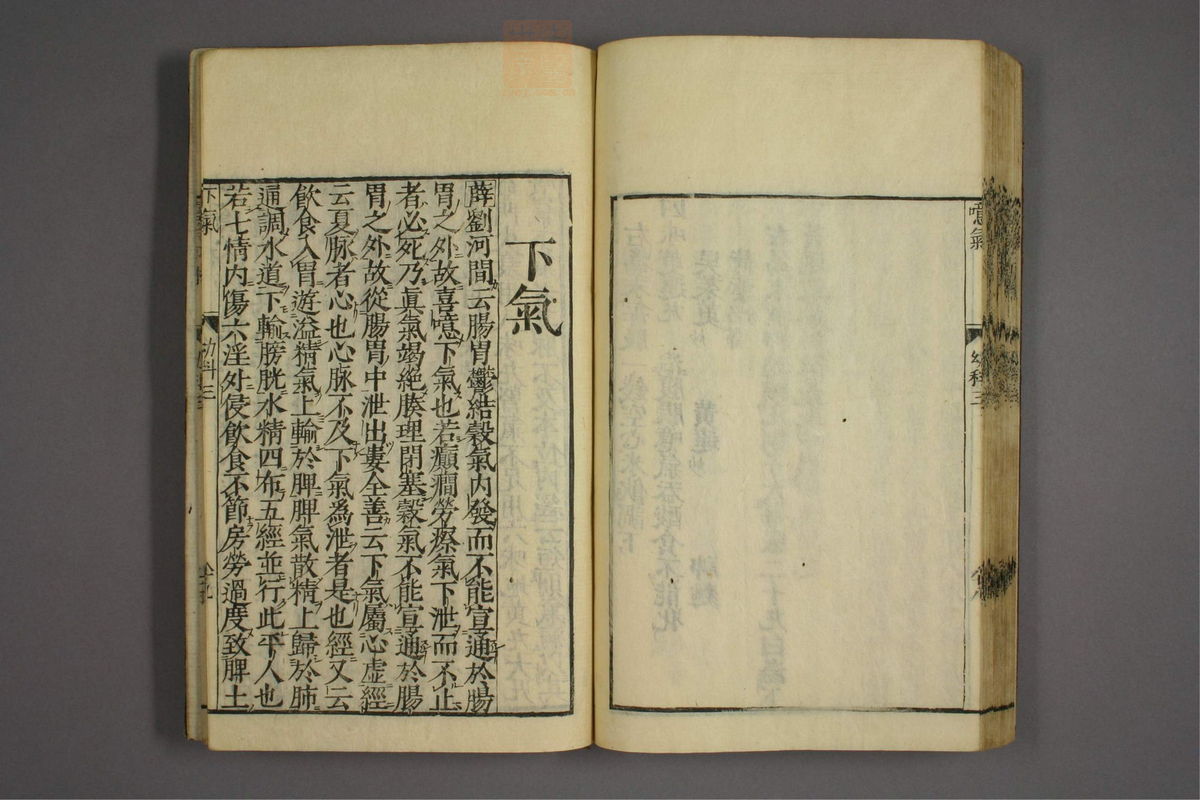 噫氣
幼科三
下氣
薛劉河間云腸胃鬱結穀氣內發而不能宣通於腸
胃之外故喜噫下氣也若癲癎勞瘵氣下泄而不止
者必死乃眞氣竭絶腠理閉塞穀氣不能宣通於腸
胃之外故從腸胃中泄出婁全善云下氣屬心虛經
云夏脉者心也心脉不及下氣爲泄者是也經又云
飲食入胃遊溢精氣上輸於脾脾氣散精上歸於肺
通調水道下輸膀胱水精四布五經並行此平人也
若七情內傷六淫外侵飲食不節房勞過度致脾土
下氣